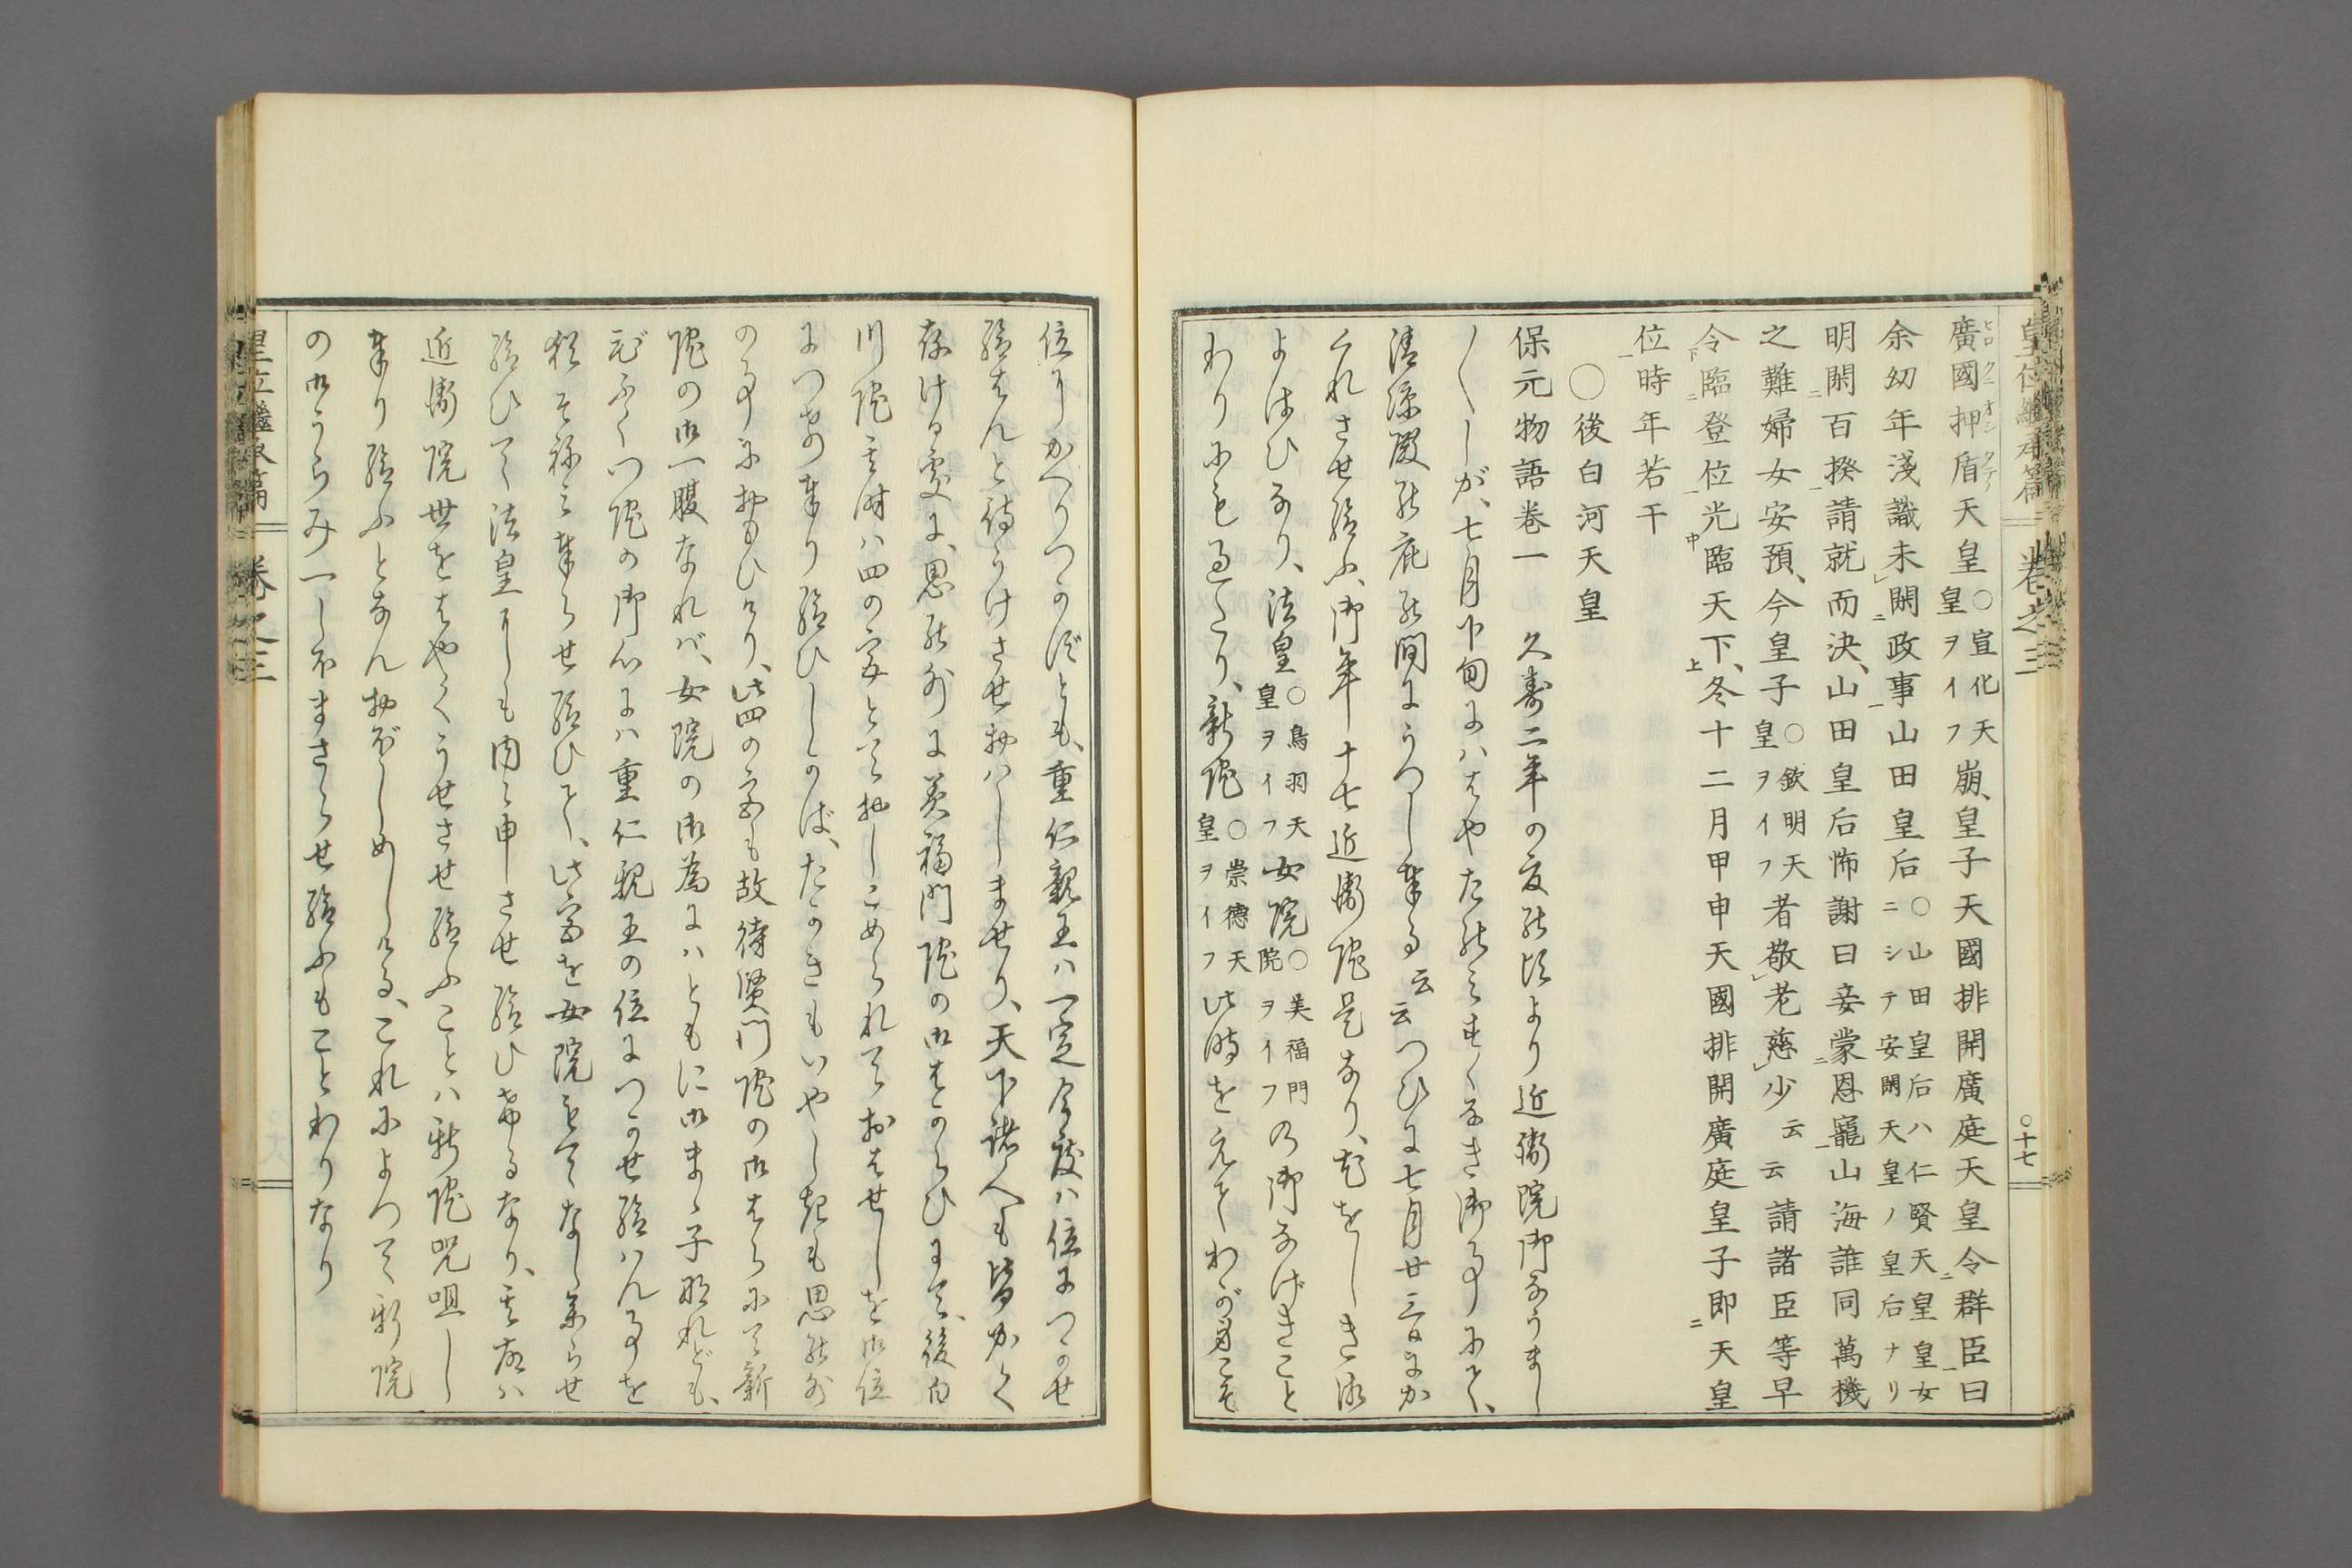 皇位繼承篇 卷之三 ○十七
廣國押盾天皇○宣化天皇ヲイフ崩、皇子天國排開廣庭天皇令群臣曰
余幼年淺識未閑政事山田皇后○山田皇后ハ仁賢天皇皇女ニシテ安閑天皇ノ皇后ナリ
明閑百揆請就而決、山田皇后怖謝曰妾蒙恩寵山海誰同萬機
之難婦女安預、今皇子○欽明天皇ヲイフ者敬老慈少云云請諸臣等早
令臨登位光臨天下、冬十二月甲申天國排開廣庭皇子即天皇
位時年若干
○後白河天皇
保元物語卷一 久壽二年の夏の頃より近衞院御なうまし
〳〵しが、七月下旬にハはやたのミすくなき御事にて、
清涼殿の庇の間にうつし奉る云云つひに七月廿三日にか
くれさせ給ふ、御年十七近衞院是なり、尤をしき御
よはひなり、法皇○鳥羽天皇ヲイフ女院○美福門院ヲイフの御なげきこと
わりにも過たり、新院○崇德天皇ヲイフ此時を之てわが身こそ
位にかへりつかずとも、重仁親王ハ一定今度ハ位につかせ
給はんと待うけさせおハしませり、天下諸人も皆かく
存ける處に、思の外に美福門院の御はからひにて、後白
川院其時ハ四の宮とておしこめられておはせしを御位
につけ奉り給ひしかば、たかきもいやしきも思の外
の事におもひけり、此四の宮も故待賢門院の御はらにて新
院の御一腹なれば、女院の御為にハともに御まゝ子なれども、
美ふくつ院の御心にハ重仁親王の位につかせ給ハん事を
猶そねミ奉らせ給ひて、此宮を女院もてなし參らせ
給ひて法皇にも内々申させ給ひけるなり、其故ハ
近衞院世をはやくうせさせ給ふことハ新院呪咀し
奉り給ふとなんおぼしめしける、これによつて新院
の御うらミ一しほまさらせ給ふもことわりなり
皇位繼承篇 卷之三